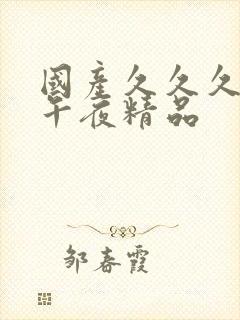 國產久久久
午夜精品
邹春霞